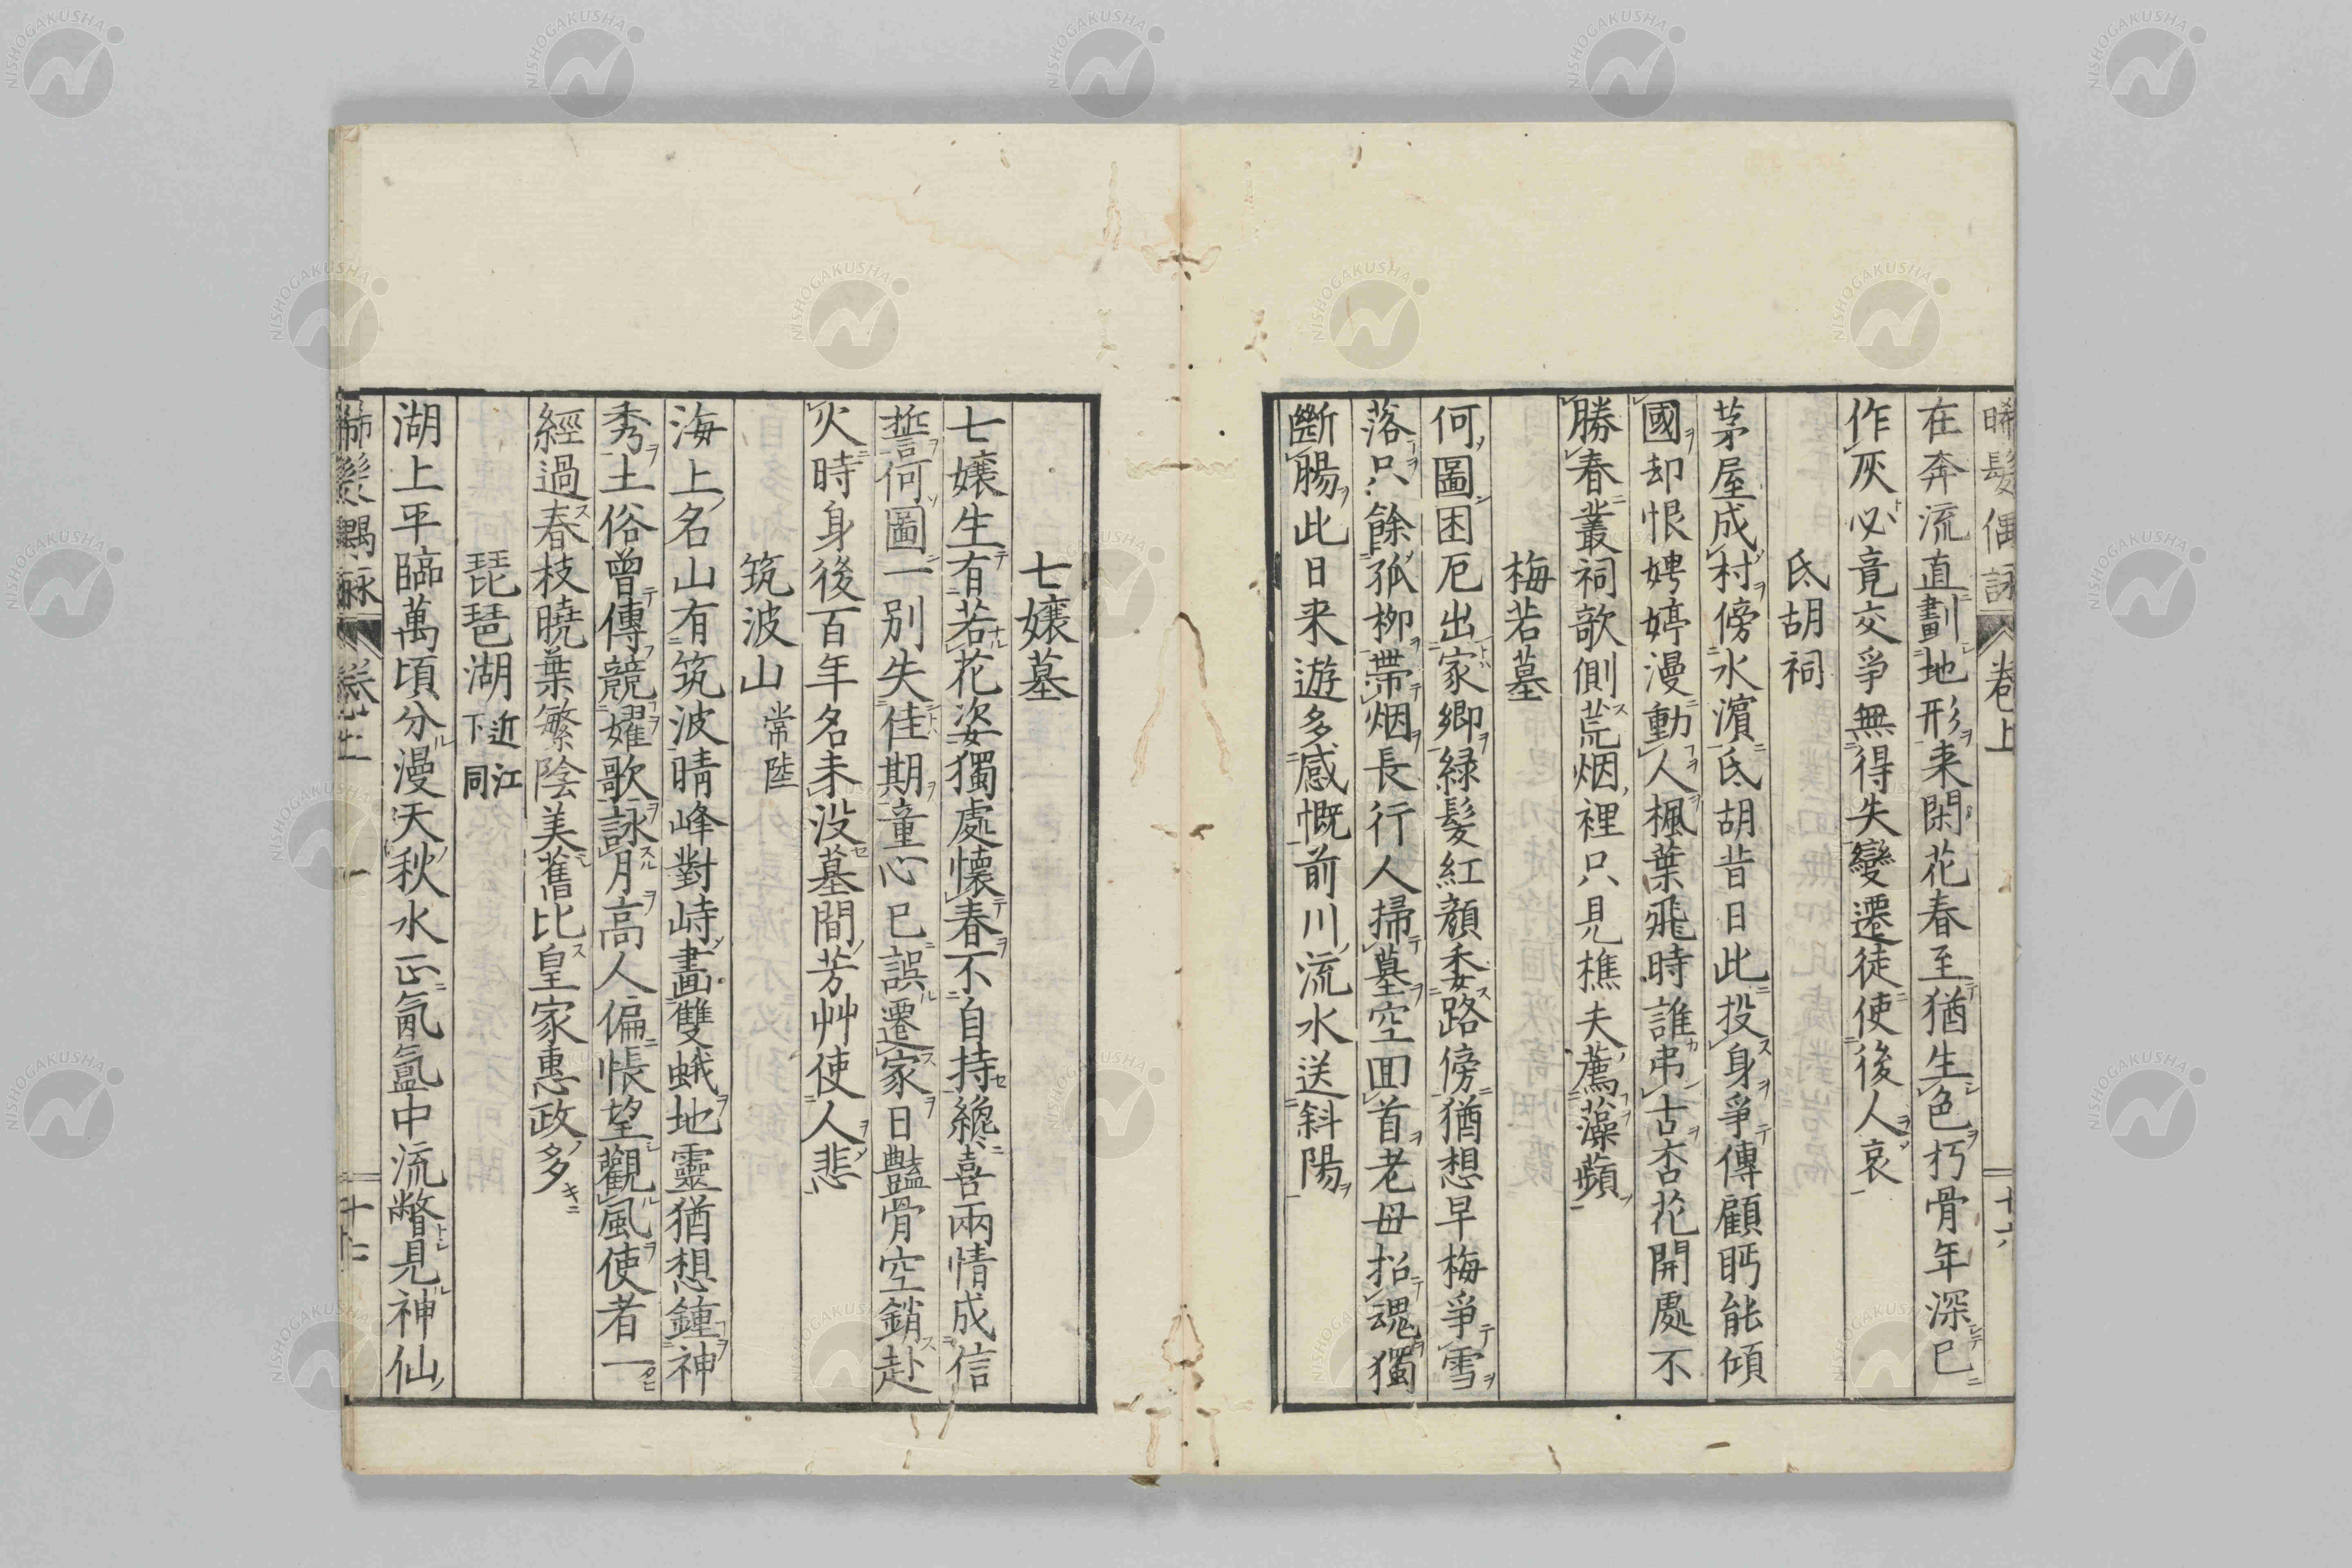 晞髮偶詠 卷上 十六
在奔流直劃地形来閑花春至猶生色朽骨年深已
作灰必竟交爭無得失變遷徒使後人哀
氐胡祠
茅屋成村傍水濵氐胡昔日此投身爭傳顧眄能傾
國却恨娉婷漫動人楓葉飛時誰弔古杏花開處不
勝春叢祠欹側荒烟裡只見樵夫薦藻蘋
梅若墓
何圖困厄出家鄉緑髮紅顔委路傍猶想早梅爭雪
落只餘孤柳帶烟長行人掃墓空囬首老母招魂獨
斷腸此日来遊多感慨前川流水送斜陽
七孃墓
七孃生有若花姿獨處懐春不自持纔喜兩情成信
誓何圖一別失佳期童心已誤遷家日豔骨空銷赴
火時身後百年名未没墓間芳艸使人悲
筑波山 常陸
海上名山有筑波晴峰對峙畫雙蛾地靈猶想鍾神
秀土俗曾傳競嬥歌詠月高人偏悵望觀風使者一
經過春枝曉葉繁陰美舊比皇家惠政多
琵琶湖 近江 下同
湖上平臨萬頃分漫天秋水正氤氳中流瞥見神仙
晞髮偶詠 卷上 十七